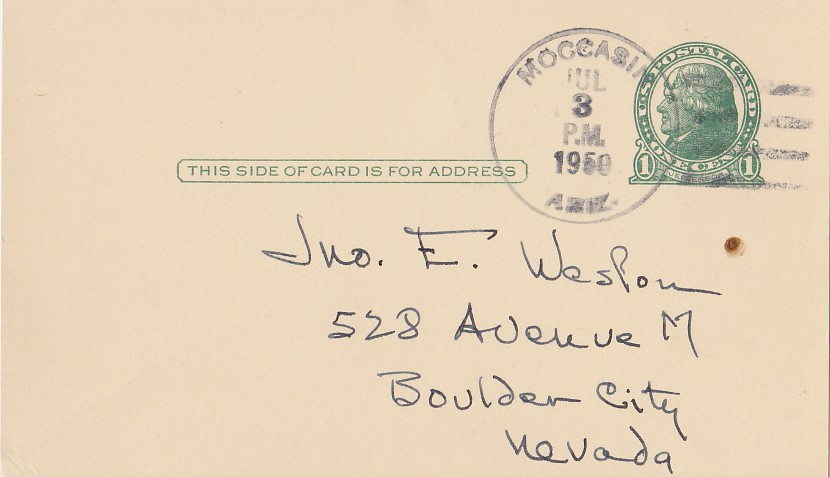 MOCCASIN
JUL
3
P.M.
1950
ARIZ.
U.S. POSTAL CARD
1 ONE CENT 1
JEFFERSON
THIS SIDE OF CARD IS FOR ADDRESS
Jno. E. Weston
528 Avenue M
Boulder City
Nevada